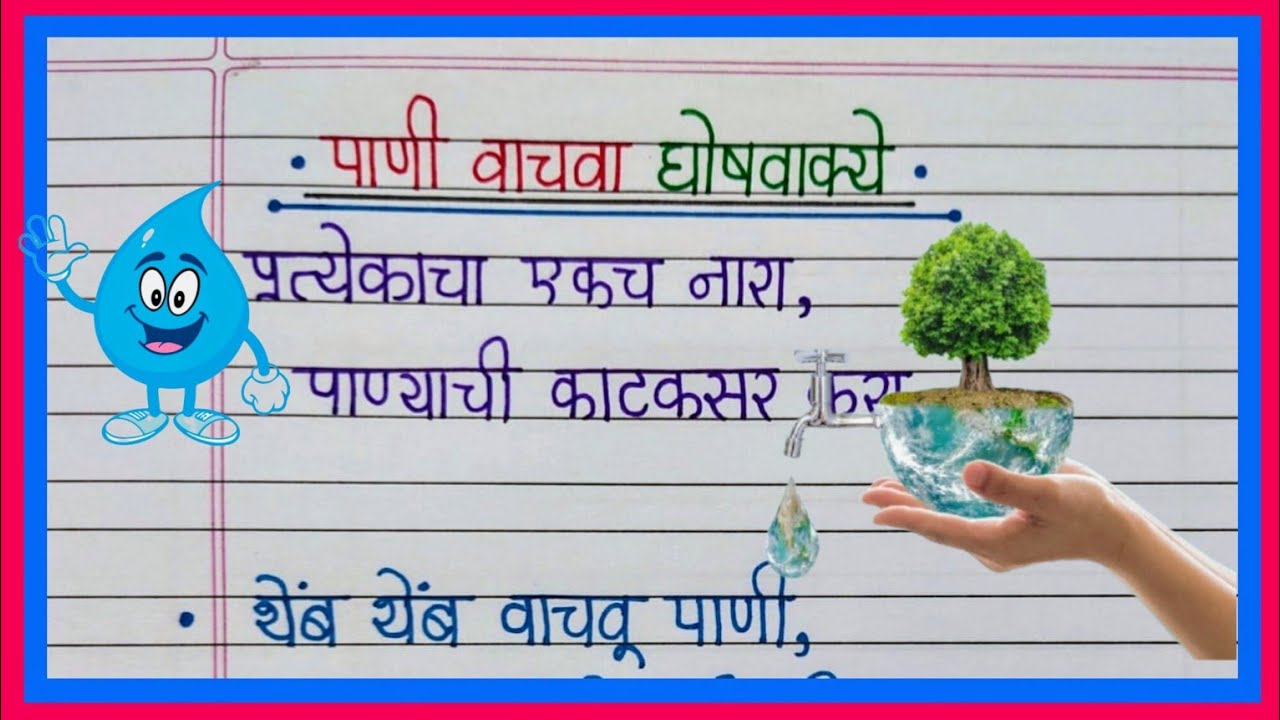 • पाणी वाचवा घोषवाक्ये •
प्रत्येकाचा एकच नारा,
पाण्याची काटकसर करा
• थेंब थेंब वाचवू पाणी,